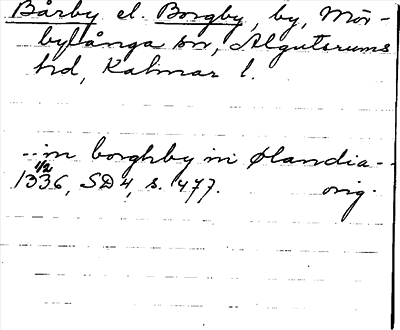 Bårby el. Borgby, by, Mör-
bylånga sn, Algutsrums
hd, Kalmar l.
--in borghby in Ølandia--
1/2
1336, SD 4, s. 477. orig.